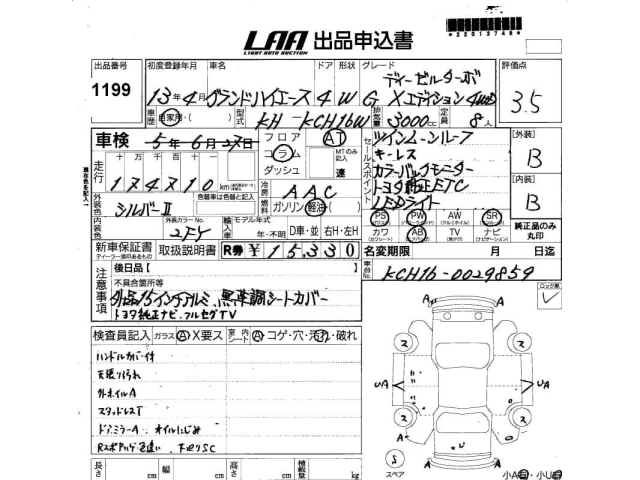 LAA 出品申込書
LIGHT AUTO AUCTION
*22013748*
出品番号 初度登録年月 車名 ドア 形状 グレード 評価点
1199
13年4月 グランドハイエース 4 W G Xエディション 4WD
ディーゼルターボ
3.5
車歴 自家用・( ) 型式 KH-KCH16W 排気量 3000cc 定員 8人
車検 5年6月27日
フロア AT
コラム MTのみ記入
ダッシュ 速
セールスポイント
ツインムーンルーフ
キーレス
カラーバックモニター
トヨタ純正ETC
LEDライト
[外装] B
[内装] B
走行 十万 万 千 百 十
174710 km
冷房 AAC
外装色 シルバーⅡ
色替車は色替と記入
燃料 ガソリン 軽油 ( )
外装カラーNo. 2FY
輸入車 モデル年式 年・不明 D車・並 右H・左H
PS PW AW SR
カワ AB TV ナビ
純正品のみ丸印
新車保証書 取扱説明書 R券 ¥15,330
名変期限 月 日迄
車台No. KCH16-0029859
注意事項
後日品【 】
不具合箇所等
外品15インチアルミ、黒革調シートカバー
トヨタ純正ナビ、フルセグTV
ロック車
検査員記入 ガラス A X要ス 室内シート A コゲ・穴・汚れ・破れ
ハンドルカバー付
天張り汚れ
外ホイルA
スタッドレスT
ドアミラーA オイルにじみ
下廻りSC
A A
ス ス
UA UA
ス ス
A A
U
S
スペア
A A
小A 小U
長さ cm 幅 cm 高さ cm 積載量 kg